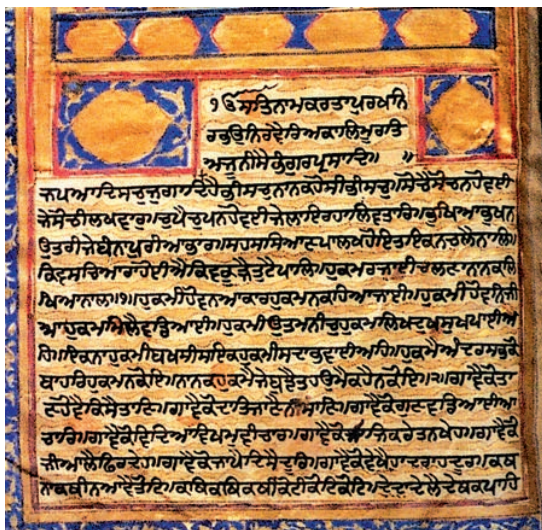 ੴਸਤਿਨਾਮੁਕਰਤਾਪੁਰਖੁਨਿ
ਰਭਉਨਿਰਵੈਰਿਅਕਾਲਮੂਰਤਿ
ਅਜੂਨੀਸੈਭੰਗੁਰਪ੍ਰਸਾਦਿ॥ ॥
ਜਪੁਆਦਿਸਚੁਜੁਗਾਦਿਹੈਭੀਸਚੁਨਾਨਕਹੋਸੀਭੀਸਚੁ॥ਸੋਚੈਸੋਚਨਹੋਵਈ
ਜੇਸੋਚੀਲਖਵਾਰ॥ਚੁਪੈਚੁਪਨਹੋਵਈਜੇਲਾਇਰਹਾਲਿਵਤਾਰ॥ਭੁਖਿਆਭੁਖਨ
ਉਤਰੀਜੇਬੰਨਾਪੁਰੀਆਭਾਰ॥ਸਹਸਸਿਆਣਪਾਲਖਹੋਇਤਾਇਕਨਚਲੈਨਾਲਿ॥
ਕਿਵਸਚਿਆਰਾਹੋਈਐਕਿਵਕੂੜੈਤੁਟੈਪਾਲਿ॥ਹੁਕਮਰਜਾਈਚਲਣਾਨਾਨਕਲਿ
ਖਿਆਨਾਲ॥੧॥ਹੁਕਮੀਹੋਵਨਆਕਾਰਹੁਕਮਨਕਹਿਆਜਾਈ॥ਹੁਕਮੀਹੋਵਨਿਜੀ
ਆਹੁਕਮਮਿਲੈਵਡਿਆਈ॥ਹੁਕਮੀਉਤਮਨੀਚੁਹੁਕਮਲਿਖਦੁਖਸੁਖਪਾਈਅ
ਹਿ॥ਇਕਨਾਹੁਕਮੀਬਖਸੀਸਇਕਹੁਕਮੀਸਦਾਭਵਾਈਅਹਿ॥ਹੁਕਮੈਅੰਦਰਸਭਕੋ
ਬਾਹਰਿਹੁਕਮਨਕੋਇ॥ਨਾਨਕਹੁਕਮੈਜੇਬੁਝੈਤਹਉਮੈਕਹੈਨਕੋਇ॥੨॥ਗਾਵੈਕੋਤਾ
ਣਹੋਵੈਕਿਸੈਤਾਣਿ॥ਗਾਵੈਕੋਦਾਤਿਜਾਣੈਨੀਸਾਣਿ॥ਗਾਵੈਕੋਗੁਣਵਡਿਆਈਆ
ਚਾਰਿ॥ਗਾਵੈਕੋਵਿਦਿਆਵਿਖਮੁਵੀਚਾਰ॥ਗਾਵੈਕੋਸਾਜਿਕਰੇਤਨਖੇਹ॥ਗਾਵੈਕੋ
ਜੀਆਲੈਫਿਰਦੇਹ॥ਗਾਵੈਕੋਜਾਪੈਦਿਸੈਦੂਰਿ॥ਗਾਵੈਕੋਵੇਖੈਹਾਦਰਾਹਦੂਰ॥ਕਥ
ਨਾਕਥੀਨਆਵੈਤੋਟਿ॥ਕਥਿਕਥਿਕਥੀਕੋਟੀਕੋਟਿਕੋਟਿ॥ਦੇਦਾਦੇਲੈਦੇਥਕਪਾਹਿ